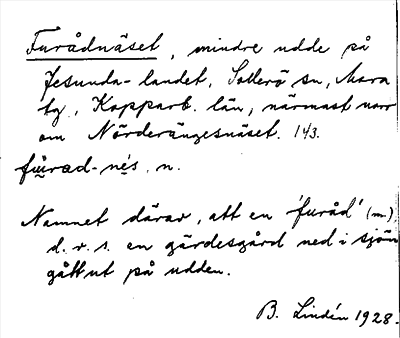 Furådnäset, mindre udde på
Jesunda-landet, Sollerö sn, Mora
tg., Kopparb. län, närmast norr
om Nörderängesnäset. 143.
fūrad-nés. n.
Namnet därav, att en 'furåd' (m.)
d.v.s. en gärdesgård ned i sjön
gått ut på udden.
B. Lindén 1928.